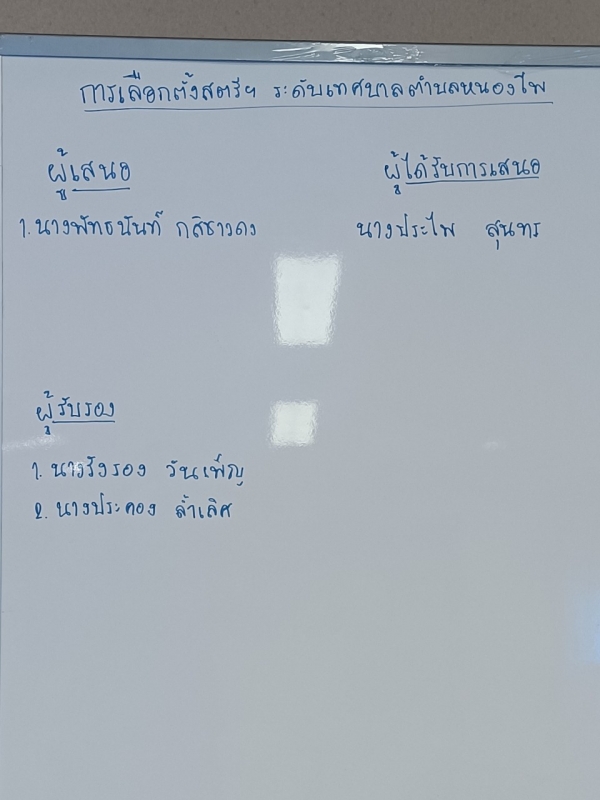 การเลือกตั้งสตรีฯ ระดับเทศบาลตำบลหนองไผ่
ผู้เสนอ
ผู้ได้รับการเสนอ
1. นางพัทธนันท์
นางประไพ สุนทร
ผู้รับรอง
1. นางรังรอง วันเพ็ญ
2. นางประคอง ล้ำเลิศ